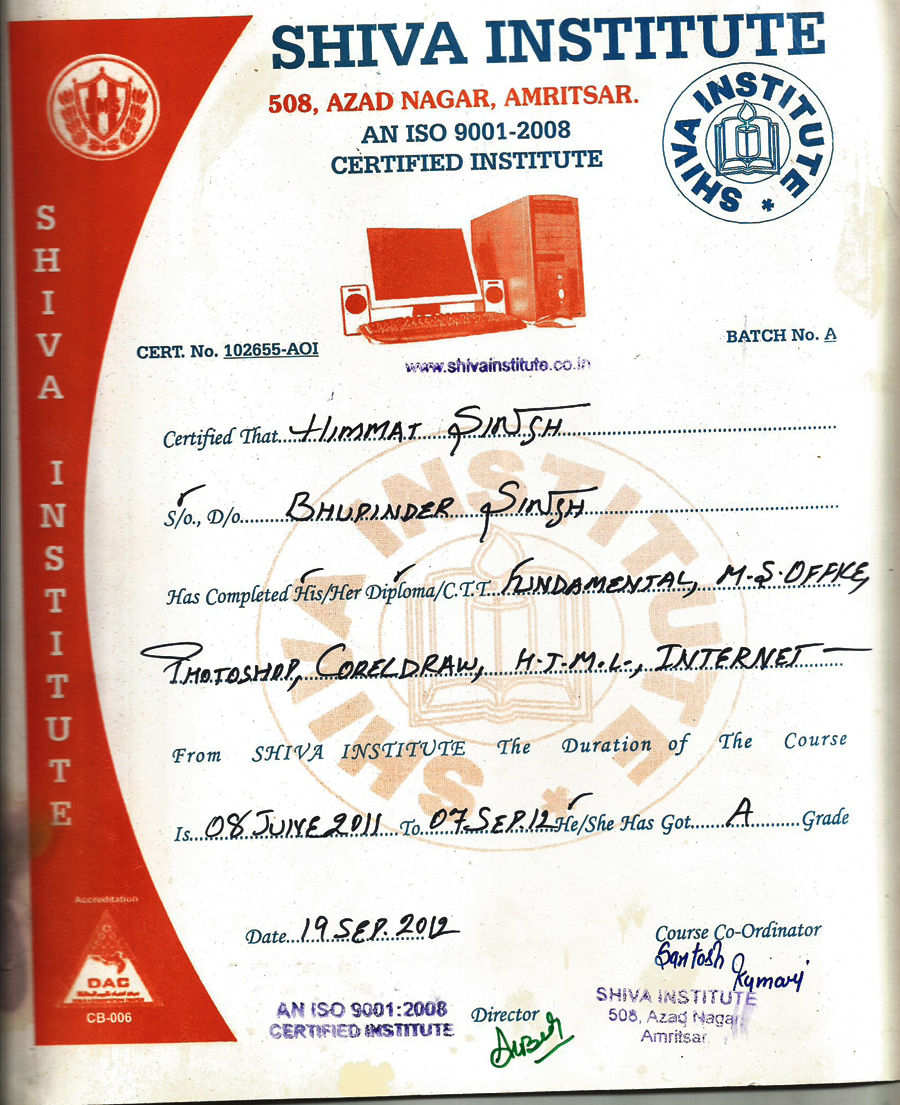 SHIVA INSTITUTE
508, AZAD NAGAR, AMRITSAR.
AN ISO 9001-2008
CERTIFIED INSTITUTE
SHIVA INSTITUTE *
SHIVA INSTITUTE
CERT. No. 102655-AOI
BATCH No. A
www.shivainstitute.co.in
Certified That HIMMAT SINGH
S/o., D/o. BHUPINDER SINGH
Has Completed His/Her Diploma/C.T.T. FUNDAMENTAL, M.S.OFFICE,
PHOTOSHOP, CORELDRAW, H.T.M.L., INTERNET
From SHIVA INSTITUTE The Duration of The Course
Is 08 JUNE 2011 To 07.SEP.12 He/She Has Got A Grade
SHIVA INSTITUTE *
Date 19 SEP. 2012
Course Co-Ordinator
Santosh Kumari
Accreditation
DAC
CB-006
AN ISO 9001:2008
CERTIFIED INSTITUTE
Director
SHIVA INSTITUTE
508, Azad Nagar
Amritsar.